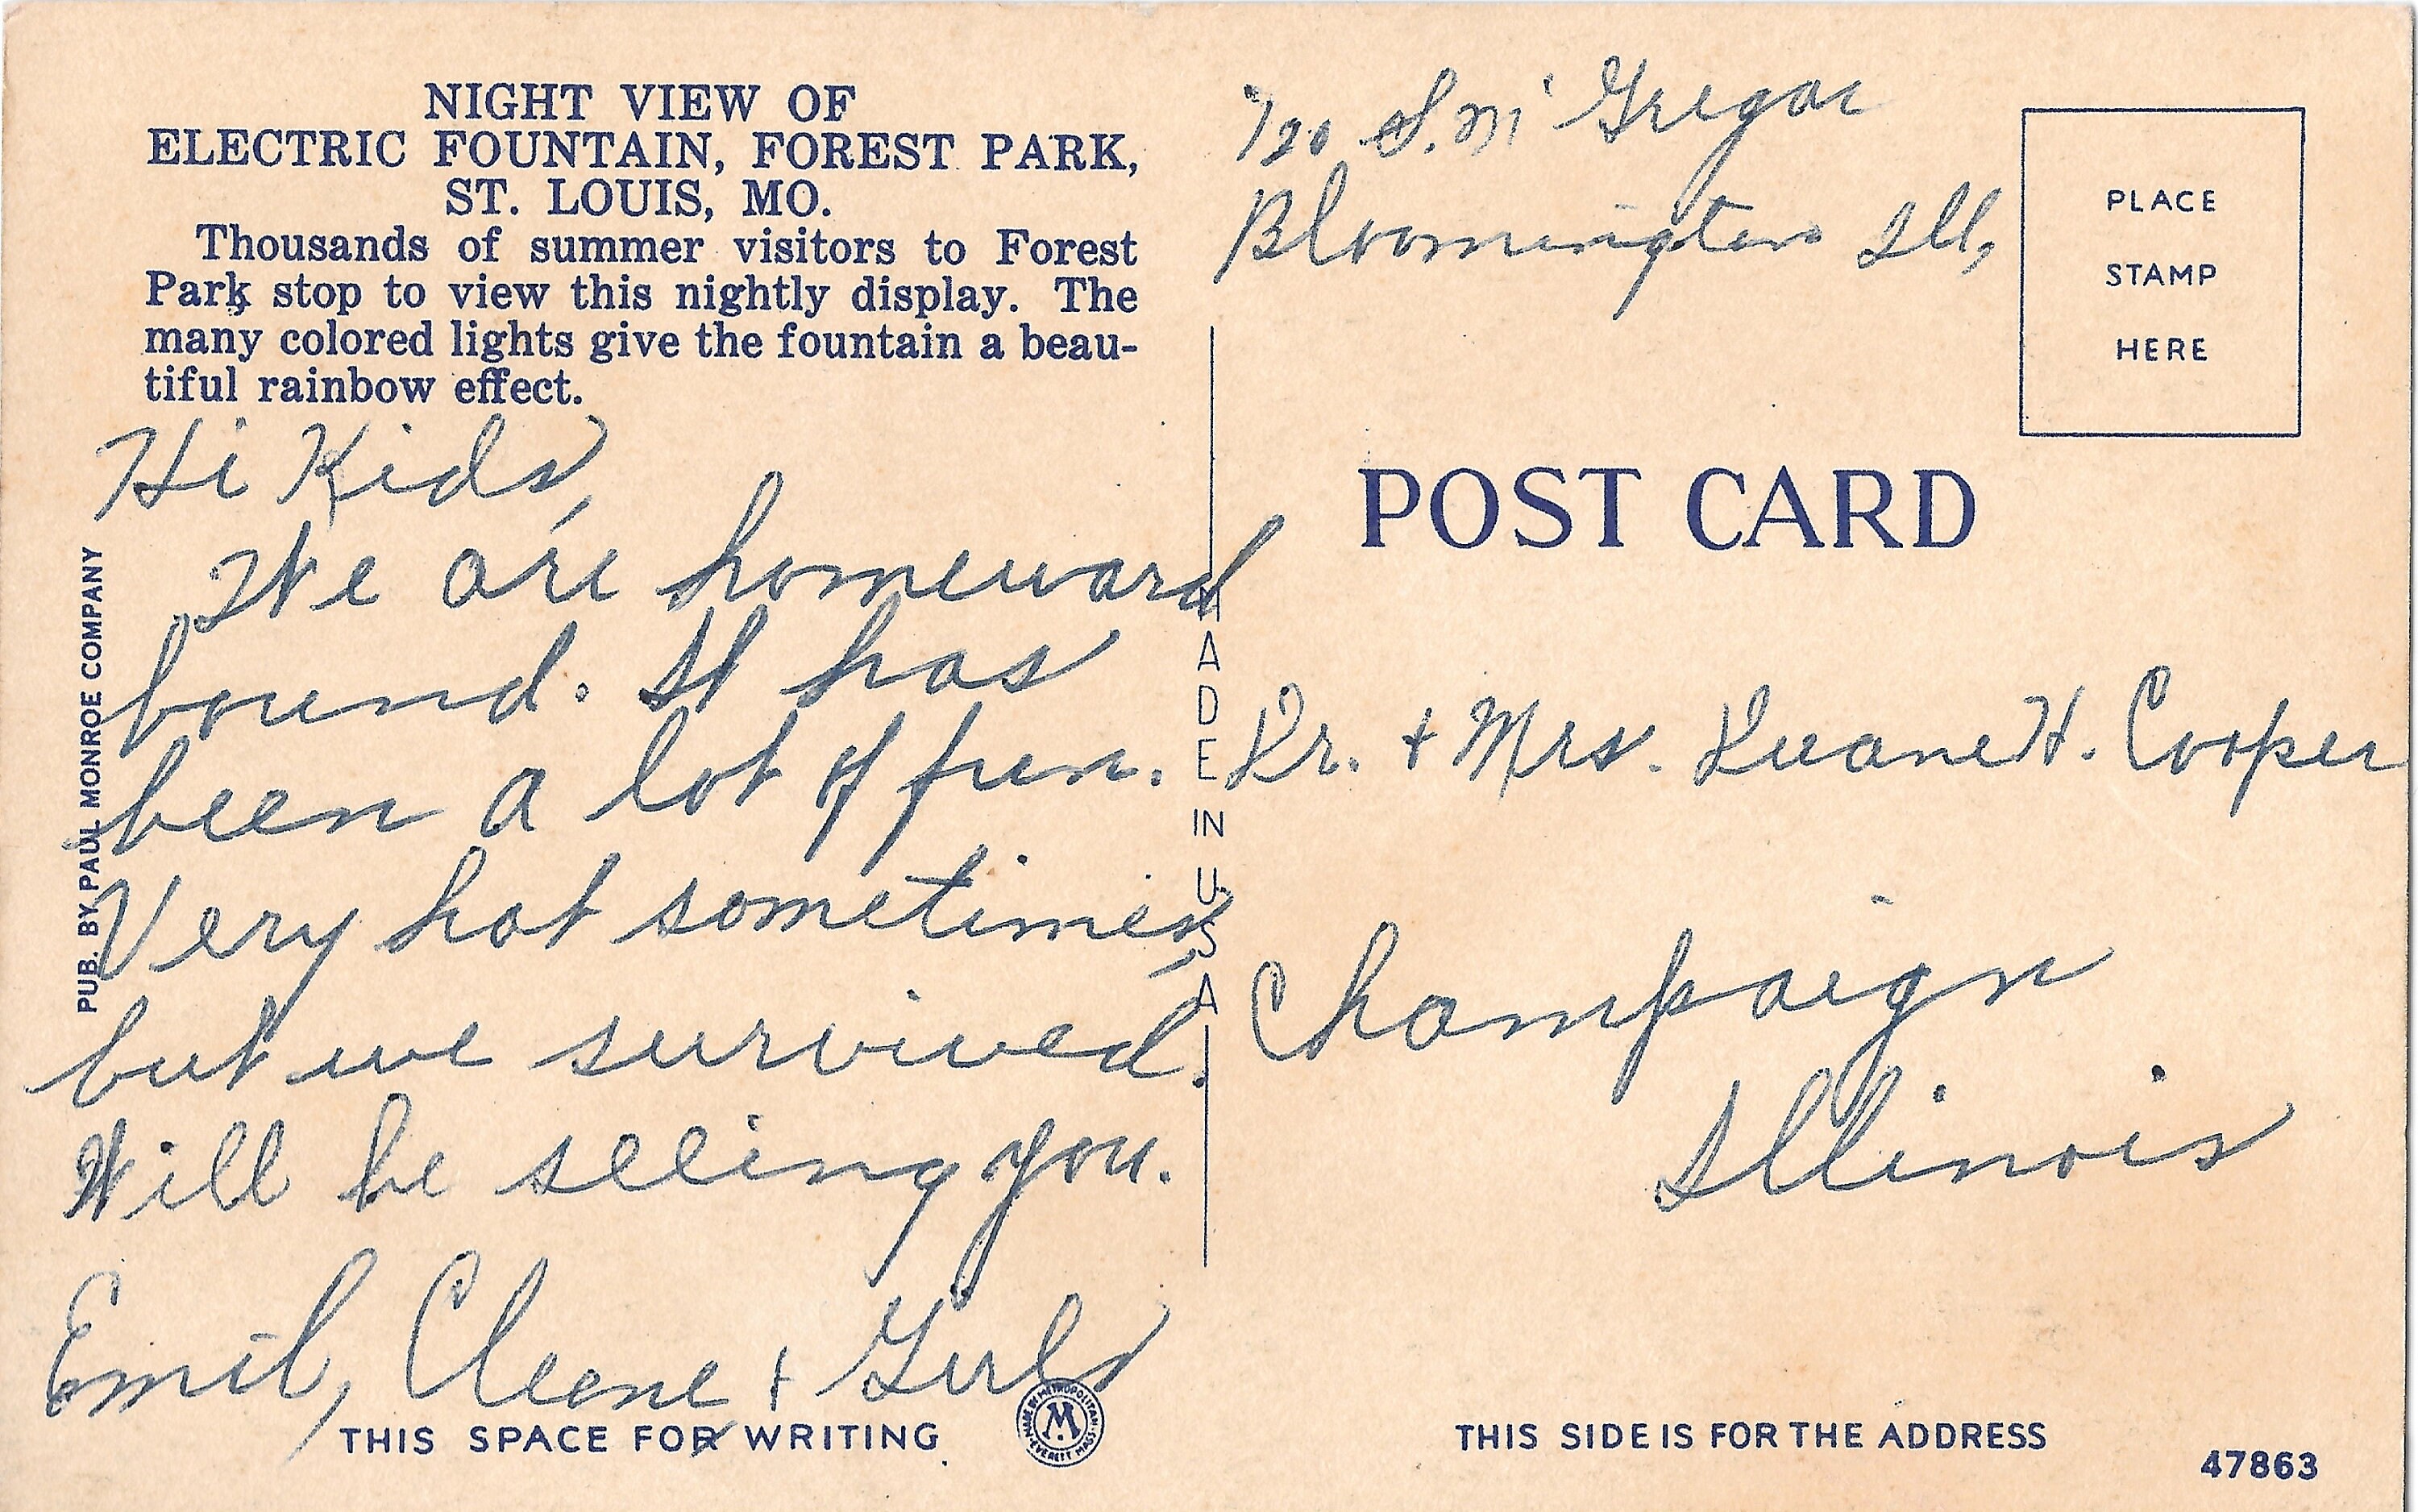 NIGHT VIEW OF
ELECTRIC FOUNTAIN, FOREST PARK,
ST. LOUIS, MO.
Thousands of summer visitors to Forest
Park stop to view this nightly display. The
many colored lights give the fountain a beau-
tiful rainbow effect.
Hi Kids,
We are homeward
bound. It has
been a lot of fun.
Very hot sometimes,
but we survived.
Will be seeing you.
Emil, Cleone + Girls
THIS SPACE FOR WRITING
PUB. BY PAUL MONROE COMPANY
MADE IN U S A
MADE BY METROPOLITAN
M
EVERETT MASS.
720 S. Mc Gregor
Bloomington Ill,
PLACE
STAMP
HERE
POST CARD
Dr. + Mrs. Duane H. Cooper
Champaign
Illinois
THIS SIDE IS FOR THE ADDRESS
47863